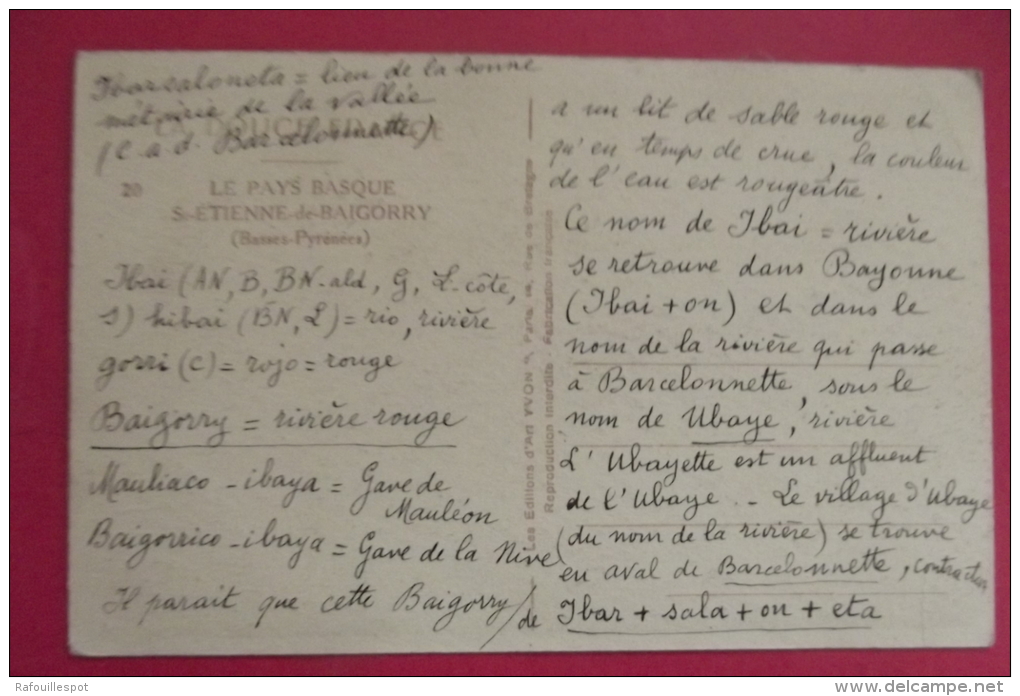 Ibarsaloneta = lieu de la bonne
métairie de la vallée
(c. a. d. Barcelonnette)
LA DOUCE FRANCE
20 LE PAYS BASQUE
St-ETIENNE-de-BAIGORRY
(Basses-Pyrénées)
Ibai (AN, B, BN-ald, G, L-côte,
S) hibai (BN, L) = rio, rivière
gorri (c) = rojo = rouge
Baigorry = rivière rouge
Mauliaco - ibaya = Gave de
Mauléon
Baigorrico - ibaya = Gave de la Nive
Il parait que cette Baigorry
Les Editions d'Art YVON, Paris, Rue de Bretagne
Reproduction Interdite - Fabrication française
a un lit de sable rouge et
qu'en temps de crue, la couleur
de l'eau est rougeâtre.
Ce nom de Ibai = rivière
se retrouve dans Bayonne
(Ibai + on) et dans le
nom de la rivière qui passe
à Barcelonnette, sous le
nom de Ubaye, rivière
L'Ubayette est un affluent
de l'Ubaye. - Le village d'Ubaye
(du nom de la rivière) se trouve
en aval de Barcelonnette, contraction
de Ibar + sala + on + eta
Rafouillespot
www.delcampe.net